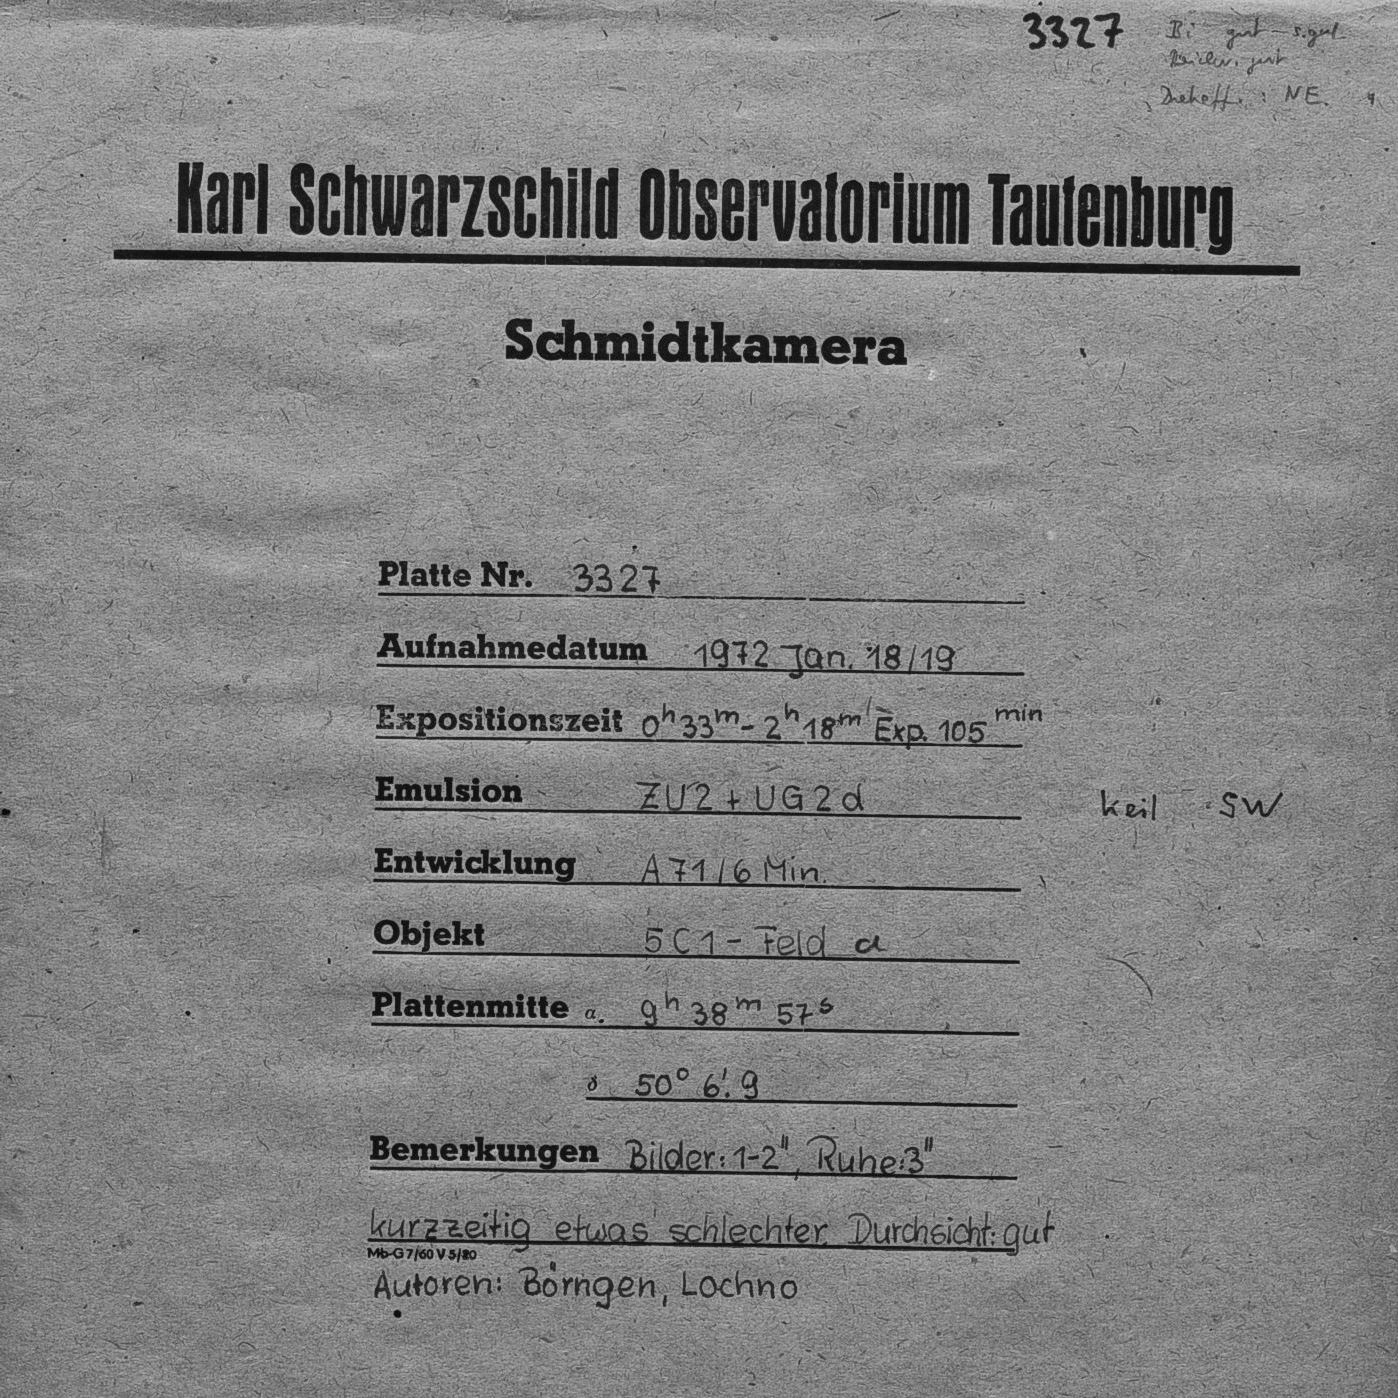 3327 Bi gut - s. gut
gut
Dreheff. : NE.
Karl Schwarzschild Observatorium Tautenburg
Schmidtkamera
Platte Nr. 3327
Aufnahmedatum 1972 Jan. 18/19
Expositionszeit 0ʰ33ᵐ - 2ʰ18ᵐ Exp. 105 min
Emulsion ZU2 + UG2d Keil SW
Entwicklung A71/6 Min.
Objekt 5C1 - Feld a
Plattenmitte α. 9ʰ 38ᵐ 57ˢ
δ 50° 6'.9
Bemerkungen Bilder: 1-2", Ruhe: 3"
kurzzeitig etwas schlechter. Durchsicht: gut
Mb-G 7/60 V 5/80
Autoren: Börngen, Lochno